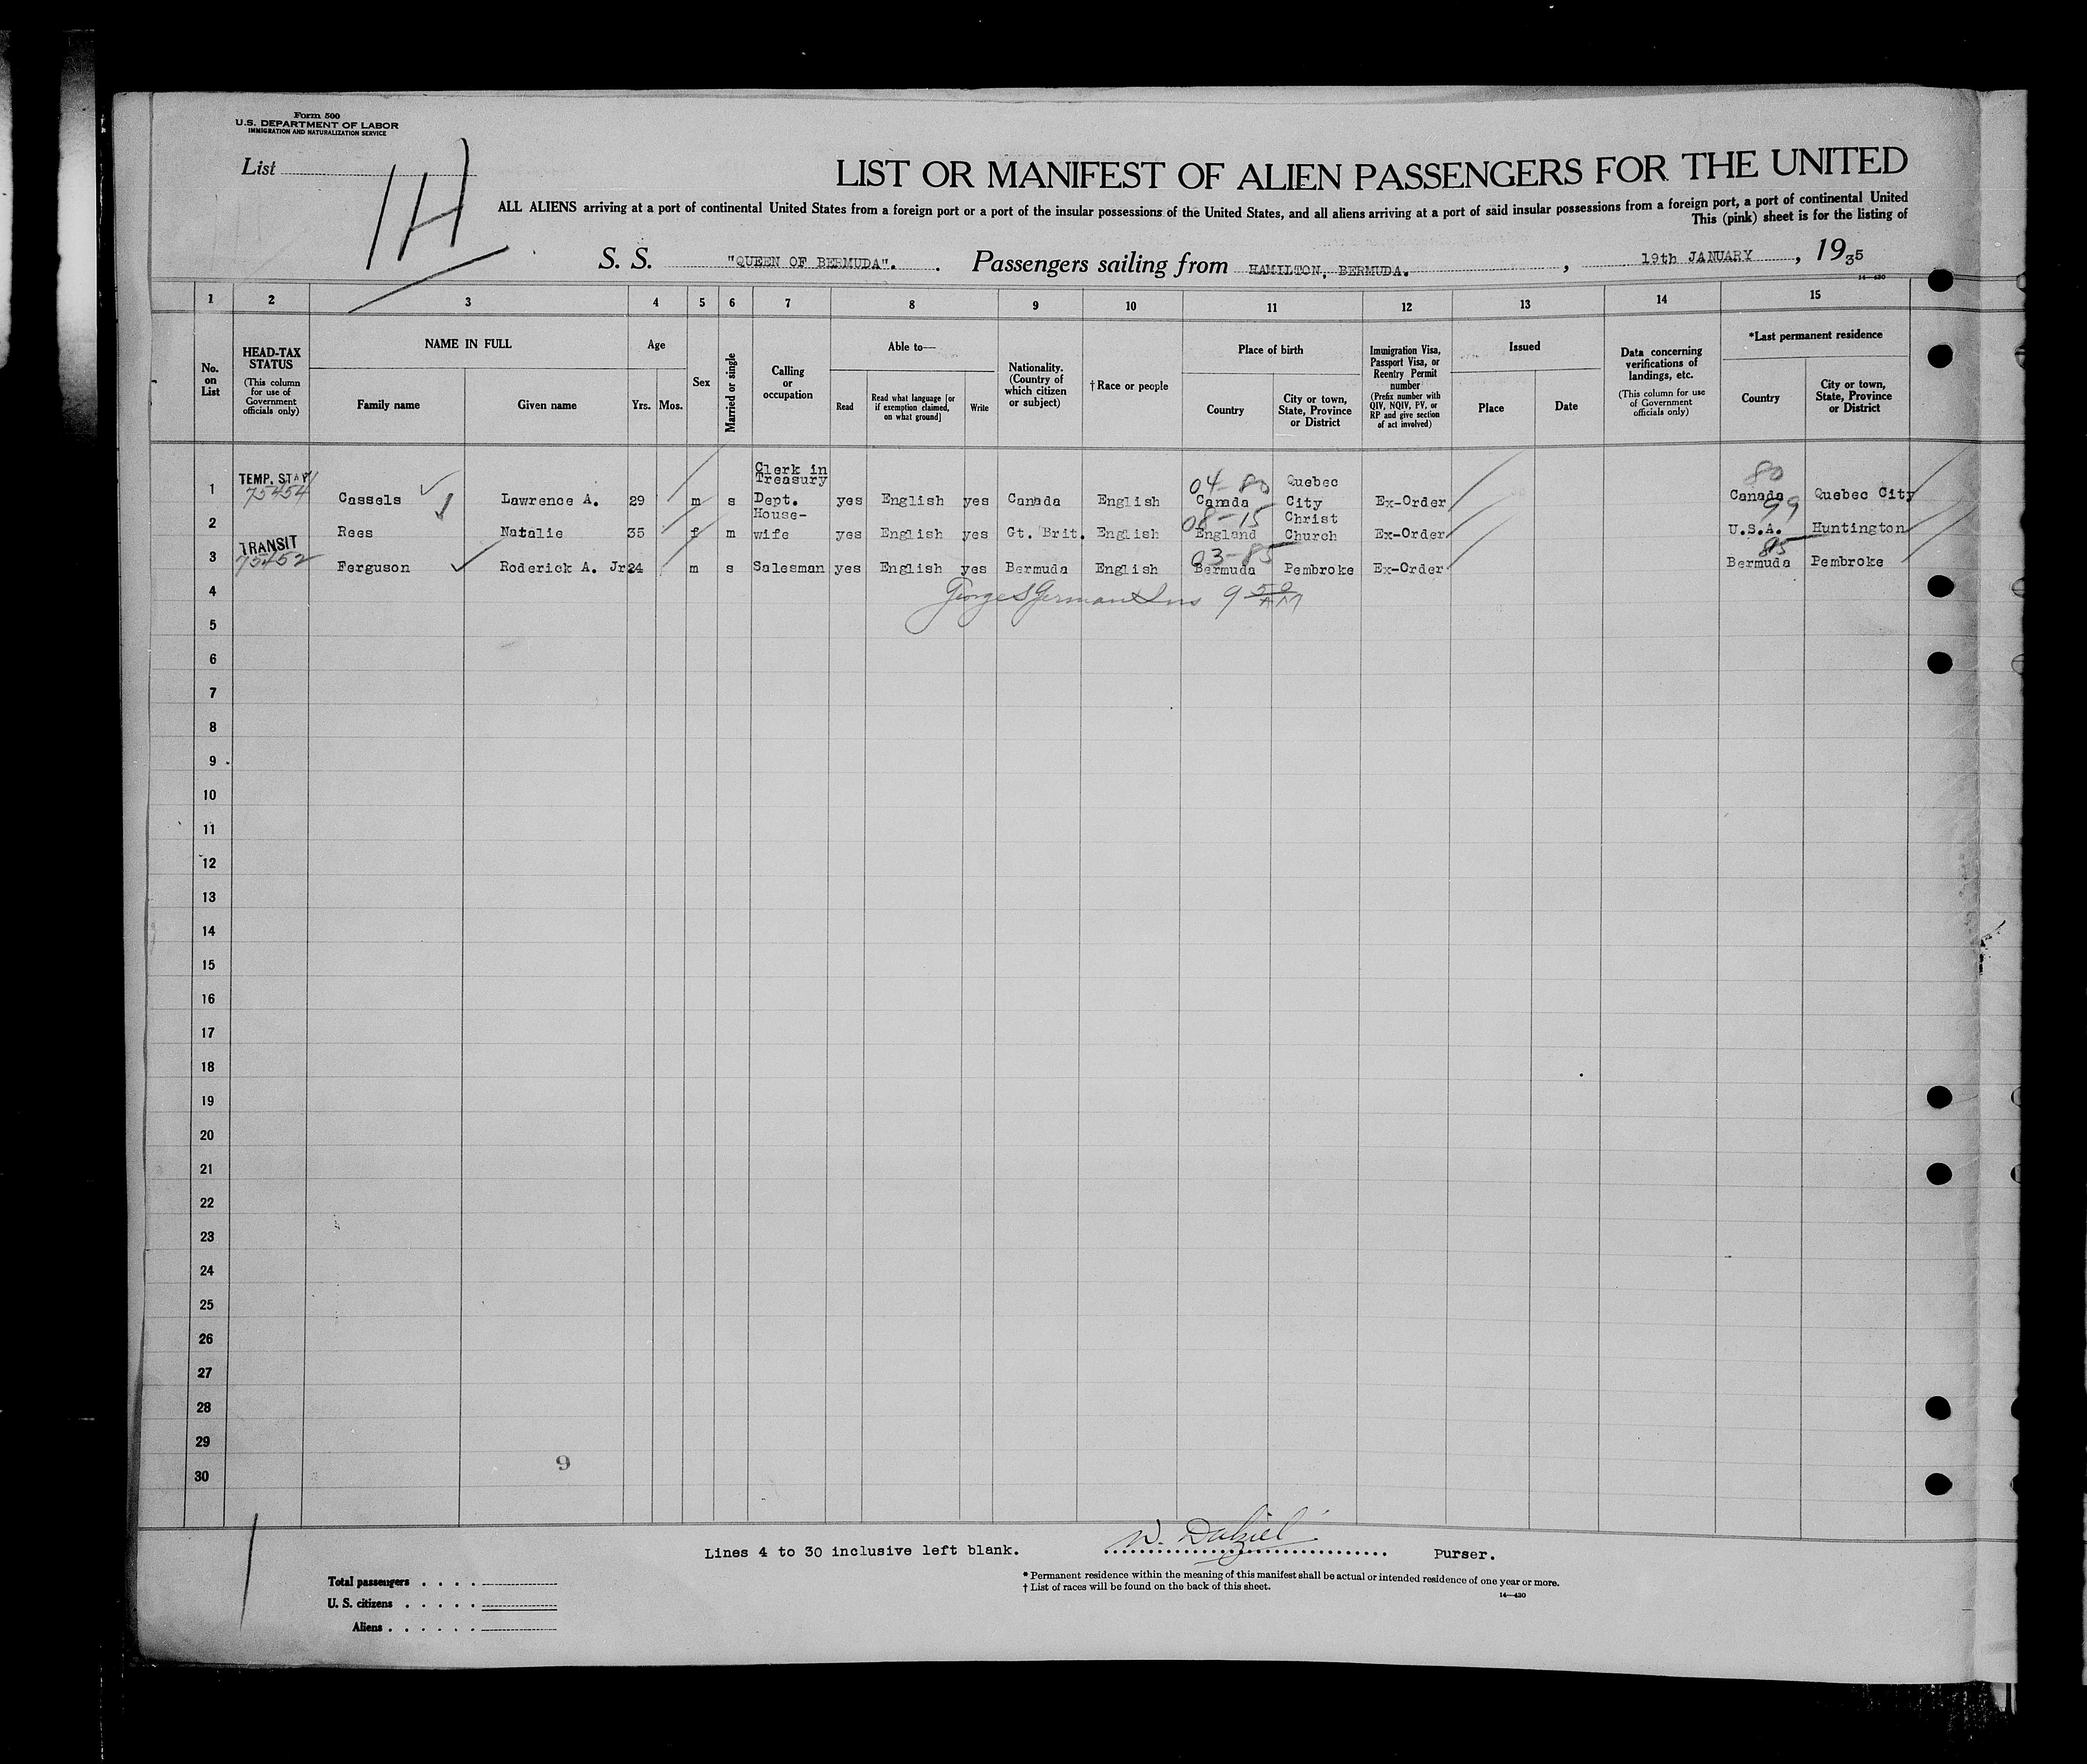 Form 500
U.S. DEPARTMENT OF LABOR
IMMIGRATION AND NATURALIZATION SERVICE
List
1H
LIST OR MANIFEST OF ALIEN PASSENGERS FOR THE UNITED
ALL ALIENS arriving at a port of continental United States from a foreign port or a port of the insular possessions of the United States, and all aliens arriving at a port of said insular possessions from a foreign port, a port of continental United
This (pink) sheet is for the listing of
S. S. "QUEEN OF BERMUDA". . Passengers sailing from HAMILTON, BERMUDA. , 19th JANUARY , 1935
14—430
1 2 3 4 5 6 7 8 9 10 11 12 13 14 15
No. on List
HEAD-TAX STATUS
(This column for use of Government officials only)
NAME IN FULL
Family name
Given name
Age
Yrs.
Mos.
Sex
Married or single
Calling or occupation
Able to—
Read
Read what language [or if exemption claimed, on what ground]
Write
Nationality. (Country of which citizen or subject)
† Race or people
Place of birth
Country
City or town, State, Province or District
Immigration Visa, Passport Visa, or Reentry Permit number
(Prefix number with QIV, NQIV, PV, or RP and give section of act involved)
Issued
Place
Date
Data concerning verifications of landings, etc.
(This column for use of Government officials only)
*Last permanent residence
Country
City or town, State, Province or District
1 TEMP. STAY 75454 Cassels Lawrence A. 29 m s Clerk in Treasury Dept. yes English yes Canada English 04-80 Canada Quebec City Ex-Order 80 Canada Quebec City
2 Rees Natalie 35 f m House-wife yes English yes Gt. Brit. English 08-15 England Christ Church Ex-Order 99 U.S.A. Huntington
3 TRANSIT 75452 Ferguson Roderick A. Jr 24 m s Salesman yes English yes Bermuda English 03-85 Bermuda Pembroke Ex-Order 85 Bermuda Pembroke
4 George S German Ins 9 50 AM
5
6
7
8
9
10
11
12
13
14
15
16
17
18
19
20
21
22
23
24
25
26
27
28
29
30
9
Lines 4 to 30 inclusive left blank. W. Dalziel Purser.
Total passengers
U. S. citizens
Aliens
* Permanent residence within the meaning of this manifest shall be actual or intended residence of one year or more.
† List of races will be found on the back of this sheet.
14—430